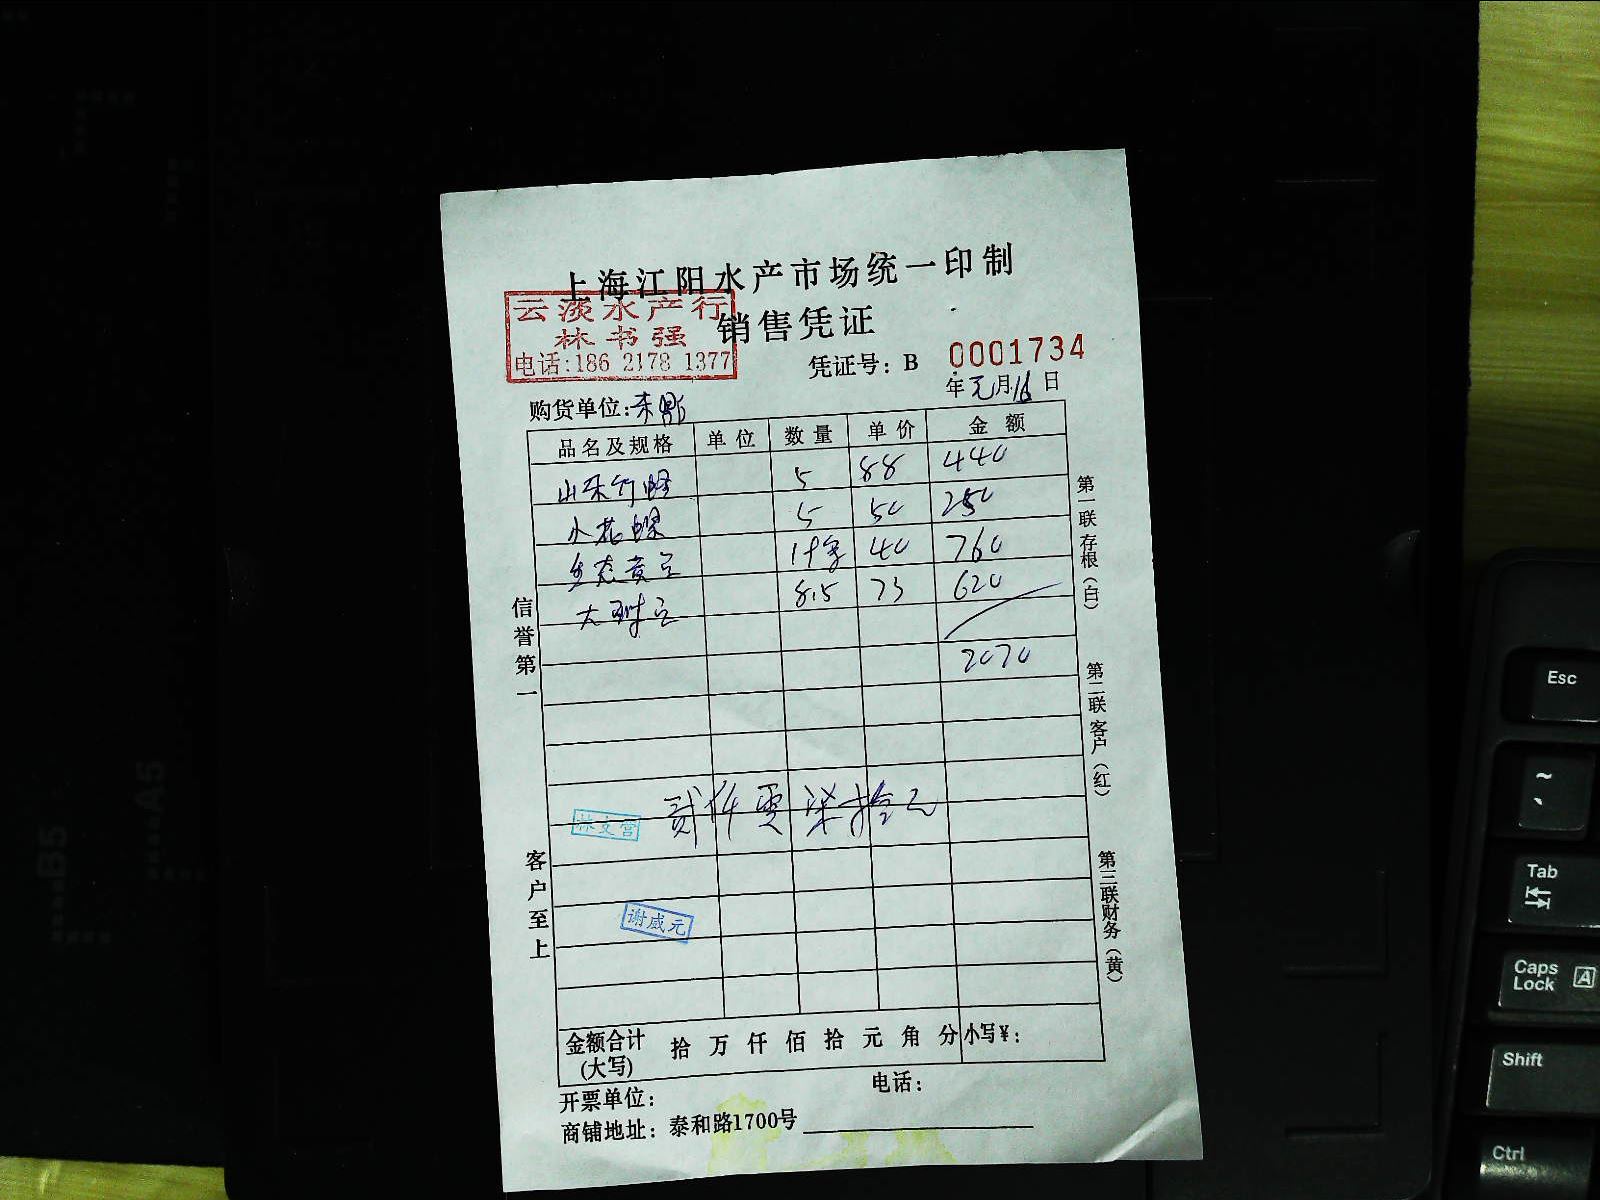 上海江阳水产市场统一印制
云淡水产行
林书强
电话:186 2178 1377
销售凭证
凭证号: B 0001734
年元月16日
购货单位:
品名及规格 单位 数量 单价 金额
山东竹蛏 5 88 440
小花螺 5 50 250
生态黄 40 760
大 8.5 73 620
2070
贰仟零柒拾元
林文营
谢威元
信誉第一
客户至上
第一联存根(白)
第二联客户(红)
第三联财务(黄)
金额合计 拾 万 仟 佰 拾 元 角 分 小写¥:
(大写)
开票单位: 电话:
商铺地址: 泰和路1700号
Esc
~
`
Tab
Caps Lock A
Shift
Ctrl
B5
A5